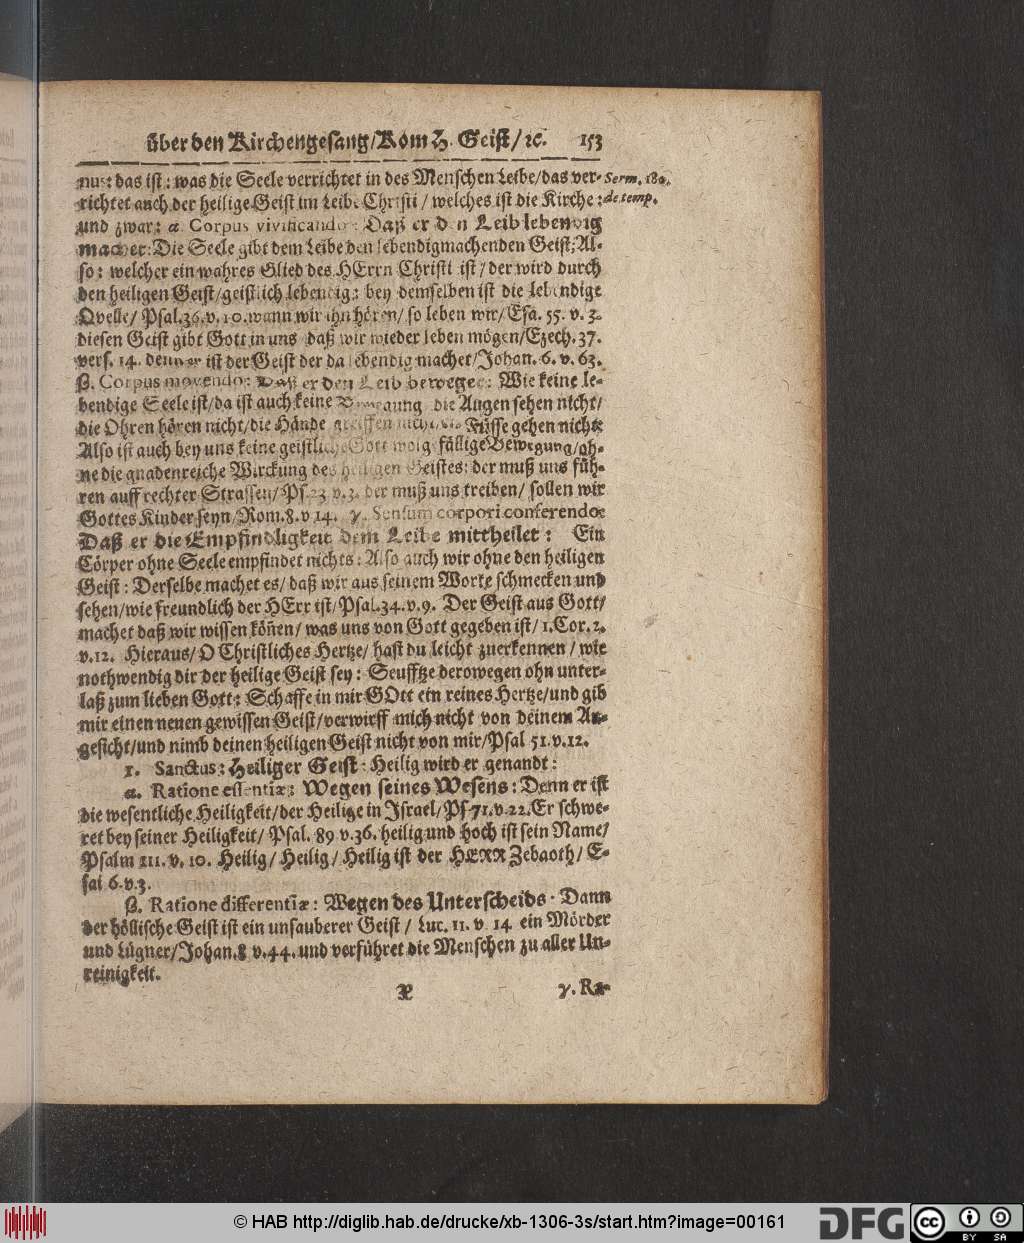 über den Kirchengesang/Kom H. Geist/ ꝛc. 153
nus: das ist: was die Seele verrichtet in des Menschen Leibe/das ver- Serm. 180.
richtet auch der heilige Geist im Leibe Christi / welches ist die Kirche: de temp.
und zwar: α. Corpus vivificando: Daß er den Leib lebendig
machet: Die Seele gibt dem Leibe den lebendigmachenden Geist; Al-
so: welcher ein wahres Glied des HErrn Christi ist / der wird durch
den heiligen Geist/geistlich lebendig: bey demselben ist die lebendige
Qvelle/ Psal.36.v.10.wann wir ihn hören/ so leben wir/Esa. 55. v. 3.
diesen Geist gibt Gott in uns daß wir wieder leben mögen/Ezech. 37.
vers. 14. denn er ist der Geist der da lebendig machet/Johan. 6. v. 63.
β. Corpus movendo: Daß er den Leib beweget: Wie keine le-
bendige Seele ist/da ist auch keine Bewegung die Augen sehen nicht/
die Ohren hören nicht/die Hände greiffen nicht/die Füsse gehen nicht:
Also ist auch bey uns keine geistliche Gott wolgefällige Bewegung/oh-
ne die gnadenreiche Wirckung des heiligen Geistes: der muß uns füh-
ren auff rechter Strassen/Ps.23 v.3. der muß uns treiben/ sollen wir
Gottes Kinder seyn/Rom.8.v 14. γ. Sensum corpori conferendo:
Daß er die Empfindligkeit dem Leibe mittheilet: Ein
Cörper ohne Seele empfindet nichts: Also auch wir ohne den heiligen
Geist: Derselbe machet es/ daß wir aus seinem Worte schmecken und
sehen/wie freundlich der HErr ist/Psal.34.v.9. Der Geist aus Gott/
machet daß wir wissen köñen/ was uns von Gott gegeben ist/ 1.Cor. 2.
v.12. Hieraus/O Christliches Hertze/ hast du leicht zuerkennen / wie
nothwendig dir der heilige Geist sey: Seufftze derowegen ohn unter-
laß zum lieben Gott: Schaffe in mir GOtt ein reines Hertze/und gib
mir einen neuen gewissen Geist/verwirff mich nicht von deinem An-
gesicht/und nimb deinen heiligen Geist nicht von mir/Psal 51.v.12.
1. Sanctus: Heiliger Geist: Heilig wird er genandt:
α. Ratione essentiæ: Wegen seines Wesens: Denn er ist
die wesentliche Heiligkeit/der Heilige in Israel/Ps 71.v.22.Er schwe-
ret bey seiner Heiligkeit/ Psal. 89 v.36. heilig und hoch ist sein Name/
Psalm 111. v. 10. Heilig/ Heilig/ Heilig ist der HERR Zebaoth/ E-
sai 6.v.3.
β. Ratione differentiæ: Wegen des Unterscheids. Dann
der höllische Geist ist ein unsauberer Geist / Luc. 11. v 14 ein Mörder
und Lügner/Johan.8 v.44. und verführet die Menschen zu aller Un-
reinigkeit.
X γ. Ra-
© HAB http://diglib.hab.de/drucke/xb-1306-3s/start.htm?image=00161 DFG cc BY SA